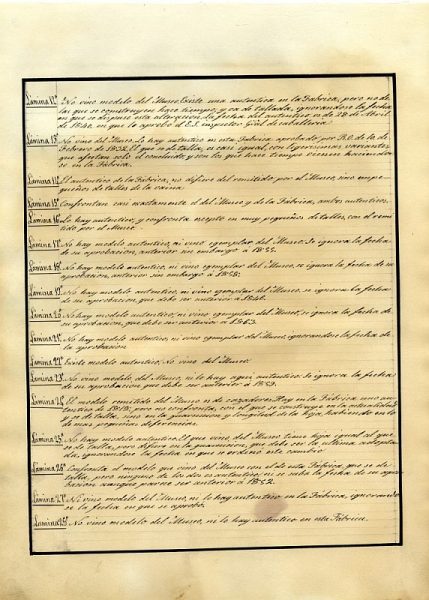 Lámina 12ª No vino modelo del Museo. Existe una autentica en la Fabrica, pero no de
las que se construyen hace tiempo, y es detallada, ignorandose la fecha
en que se dispuso esta alteracion. La fecha del autentico es de 28 de Abril
de 1840, en que lo aprobó el E.S. inspector Gral de caballeria.
Lámina 13ª No vino del Museo. Lo hay autentico en esta Fabrica aprobado por R.O. de 1º de
Febrero de 1832. El que se detalla, es casi igual, con ligerisimas variantes
que afectan solo el concluido y son los que hace tiempo vienen haciendo
se en la Fabrica.
Lámina 14ª El autentico de la Fabrica, no difiere del remitido por el Museo, sino en pe-
queños detalles de la vaina.
Lámina 15ª Confrontan casi exactamente el del Museo y de la Fabrica, ambos autenticos.
Lámina 16ª Lo hay autentico, y confronta escepto en muy pequeños detalles, con el remi-
tido por el Museo.
Lámina 17ª No hay modelo autentico, ni vino ejemplar del Museo. Se ignora la fecha
de su aprobacion, anterior sin embargo á
Lámina 18ª No hay modelo autentico, ni vino ejemplar del Museo, se ignora la fecha de su
aprobacion, anterior sin embargo á 1858.
Lámina 19ª No hay modelo autentico, ni vino ejemplar del Museo, se ignora la fecha
de su aprobacion, que debe ser anterior á
Lámina 20 No hay modelo autentico, ni vino ejemplar del Museo, se ignora la fecha de
su aprobacion, que debe ser anterior á 1863.
Lámina 21 No hay modelo autentico, ni vino ejemplar del Museo ignorandose la fecha de
la aprobacion.
Lámina 22ª Existe modelo autentico. No vino del Museo.
Lámina 23ª No vino modelo del Museo, ni le hay aqui autentico. Se ignora la fecha
de su aprobacion que debe ser anterior á 1852.
Lámina 24 El modelo remitido del Museo, es de cazadores. Hay en la Fabrica uno au-
tentico de 1818, pero no confronta, con el que se construye en la actualidad
y se detalla, sino en la guarnicion y longitud de la hoja, habiendo en lo
demas pequeñas diferencias.
Lámina 25ª No hay modelo autentico. El que vino del Museo tiene hoja igual al que
se detalla, pero difiere en la guarnicion, que debe ser la ultima adopta-
da, ignorandose la fecha en que se ordenó este cambio.
Lámina 26ª Confronta el modelo que vino del Museo con el de esta Fabrica, que se de-
talla, pero ninguno de los dos es autentico; ni se sabe la fecha de su apro-
bacion aunque parece ser anterior á 1852.
Lámina 27ª No vino modelo del Museo, ni lo hay autentico en la Fabrica, ignorando-
se la fecha en que se aprobó.
Lámina 28ª No vino modelo del Museo, ni lo hay autentico en esta Fabrica.